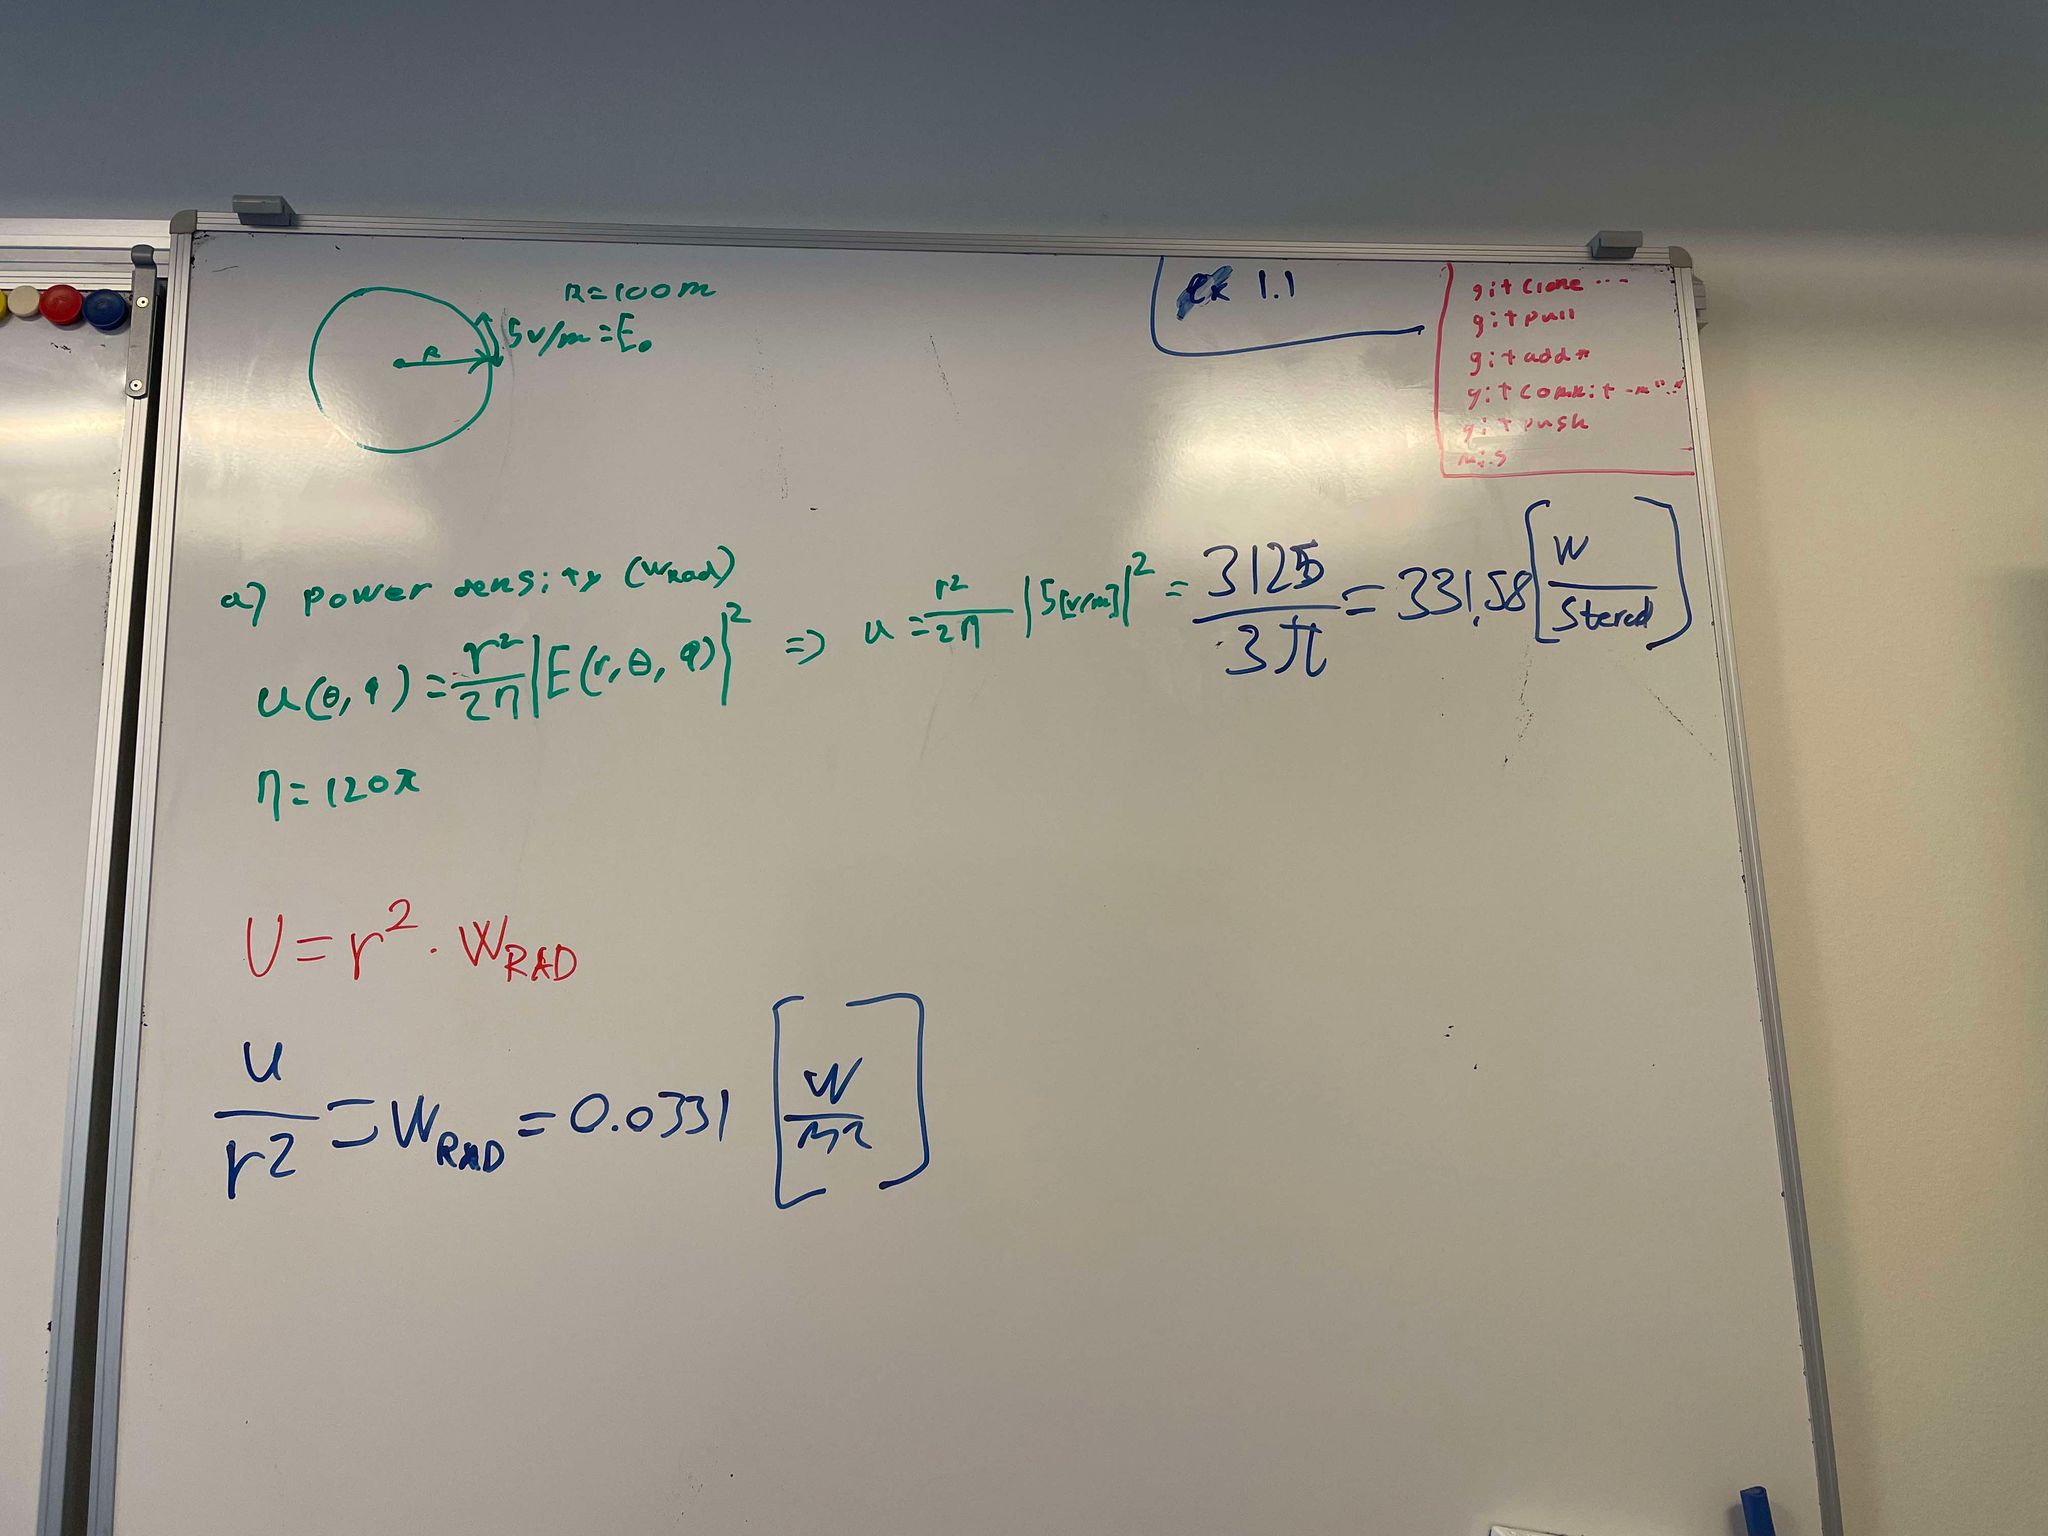 R=100m
R
5v/m=E₀
ex 1.1
git clone ...
git pull
git add *
git commit -m"..."
git push
a) power density (WRad)
u(θ,φ) = r²/2η |E(r,θ,φ)|² => u = r²/2η |5[v/m]|² = 3125/3π = 331,58 [W/Sterad]
η=120π
U = r² · WRAD
u/r2 = WRAD = 0.0331 [W/m2]